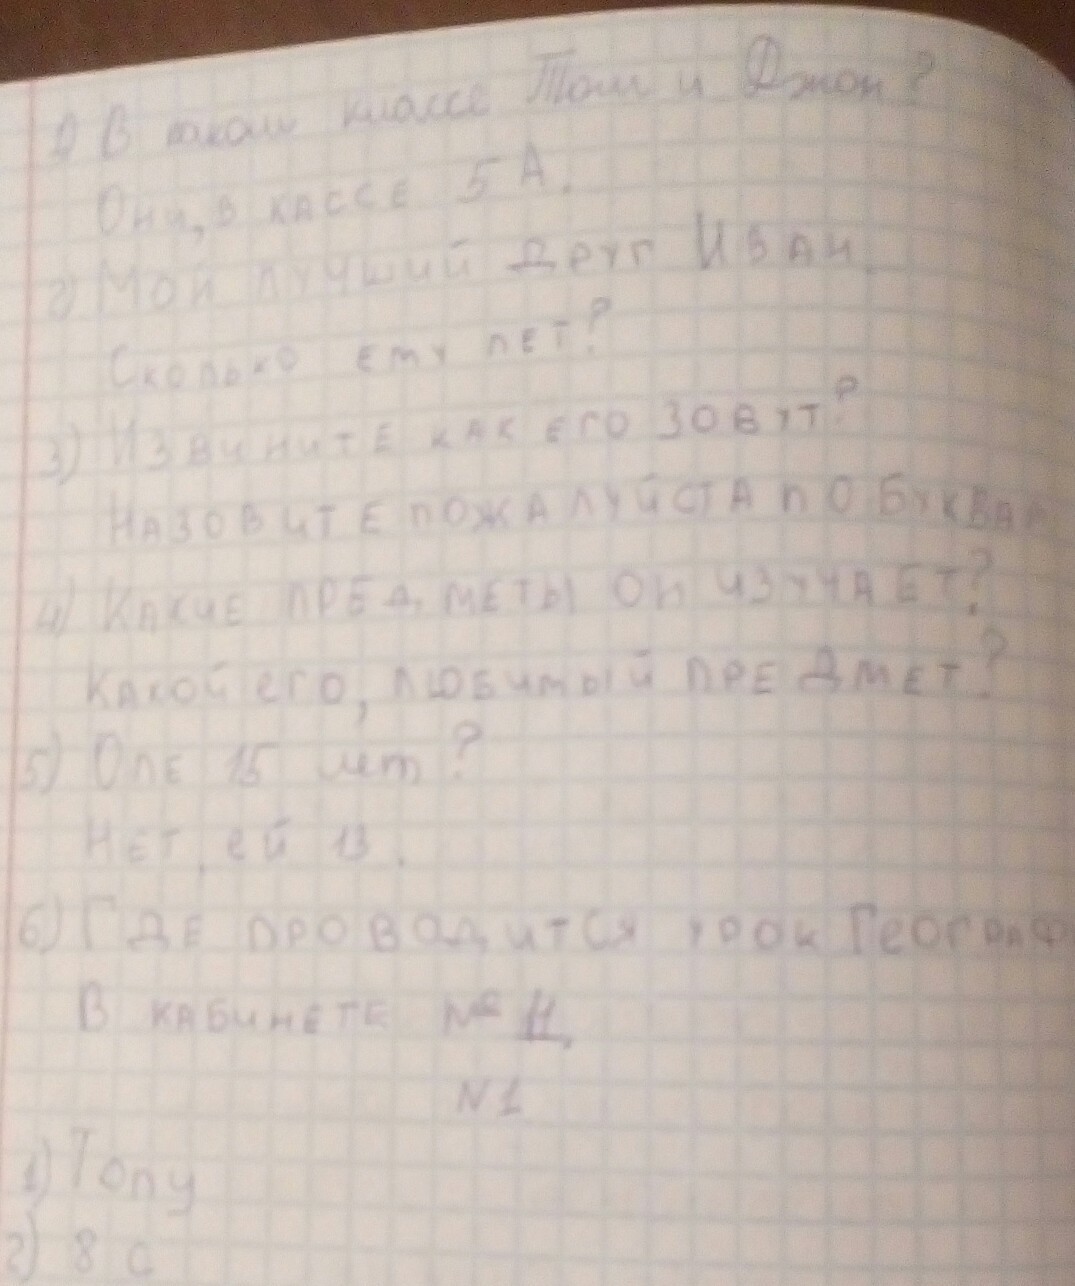 1) В каком классе Том и Джон?
Они, в кассе 5 А.
2) Мой лучший друг Иван
Сколько ему лет?
3) Извините как его зовут?
Назовите пожалуйста по буквам
4) Какие предметы он изучает?
Какой его, любимый предмет?
5) Оле 15 лет?
Нет, ей 13.
6) Где проводится урок Географ
В кабинете № 11,
N1
1) Tony
2) 8 c